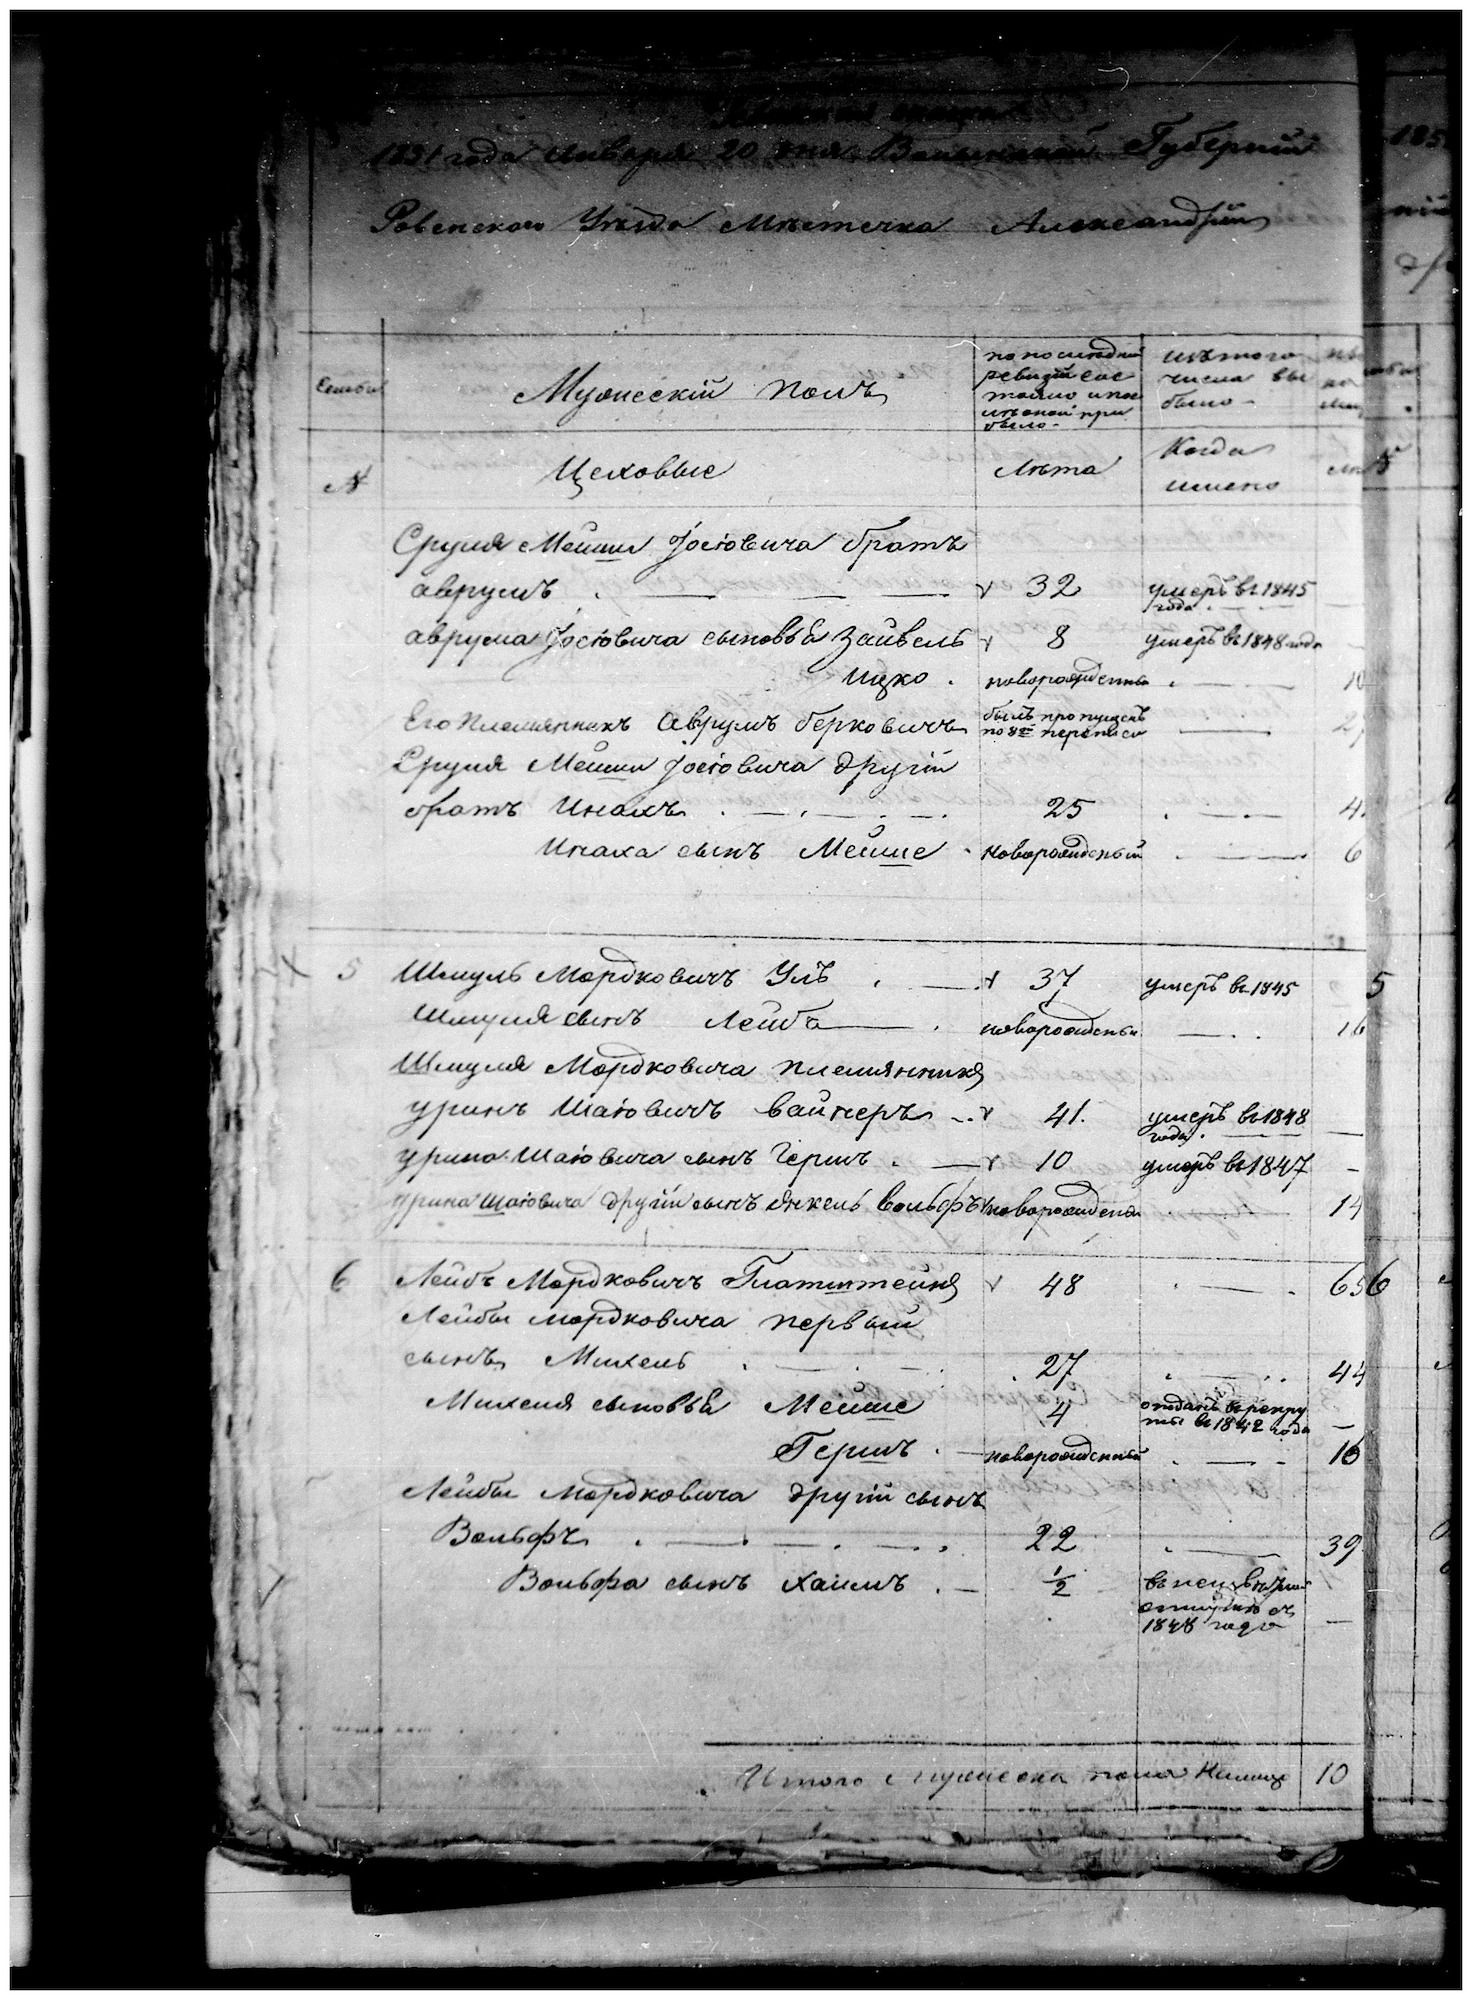 1851 года Января 20 дня Волынской Губерніи
Ровенского Уѣзда Мѣстечка Александріи
Семьи
Мужескій полъ
по последней
ревизіи сос
тояло и пос
лѣ оной при
было
изъ того
числа вы
было
№
Цеховые
Лѣта
Когда
имено
Сруля Мейши Іосіовича братъ
Аврумъ 32 умеръ въ 1845
года
Аврума Іосіовича сыновья Зайвель 8 умеръ въ 1848 года
Ицко новорожденны 10
Его племянникъ Аврумъ Берковичъ былъ пропущенъ
по 8й переписи
Сруля Мейши Іосіовича другій
братъ Инахъ 25
Инаха сынъ Мейше новорожденый 6
5 Шмуль Мордковичъ Улъ 37 умеръ въ 1845 5
Шмуля сынъ Лейба новорожденны 16
Шмуля Мордковича племянника
Уринъ Шаіовичъ Вайнеръ 41 умеръ въ 1848
года
Урина Шаіовича сынъ Гершъ 10 умеръ въ 1847
Урина Шаіовича другій сынъ Янкель Вольфъ новорожден 14
6 Лейбъ Мордковичъ Глатштейнъ 48 65 6
Лейбы Мордковича первый
сынъ Михель 27 44
Михеля сыновья Мейше 4 отданъ въ рекру
ты въ 1842 года
Гершъ новорожденный 16
Лейбы Мордковича другій сынъ
Вольфъ 22 39
Вольфа сынъ Хаимъ 1/2 въ
отлучке съ
1848 года
Итого мужеска пола Налицо 10